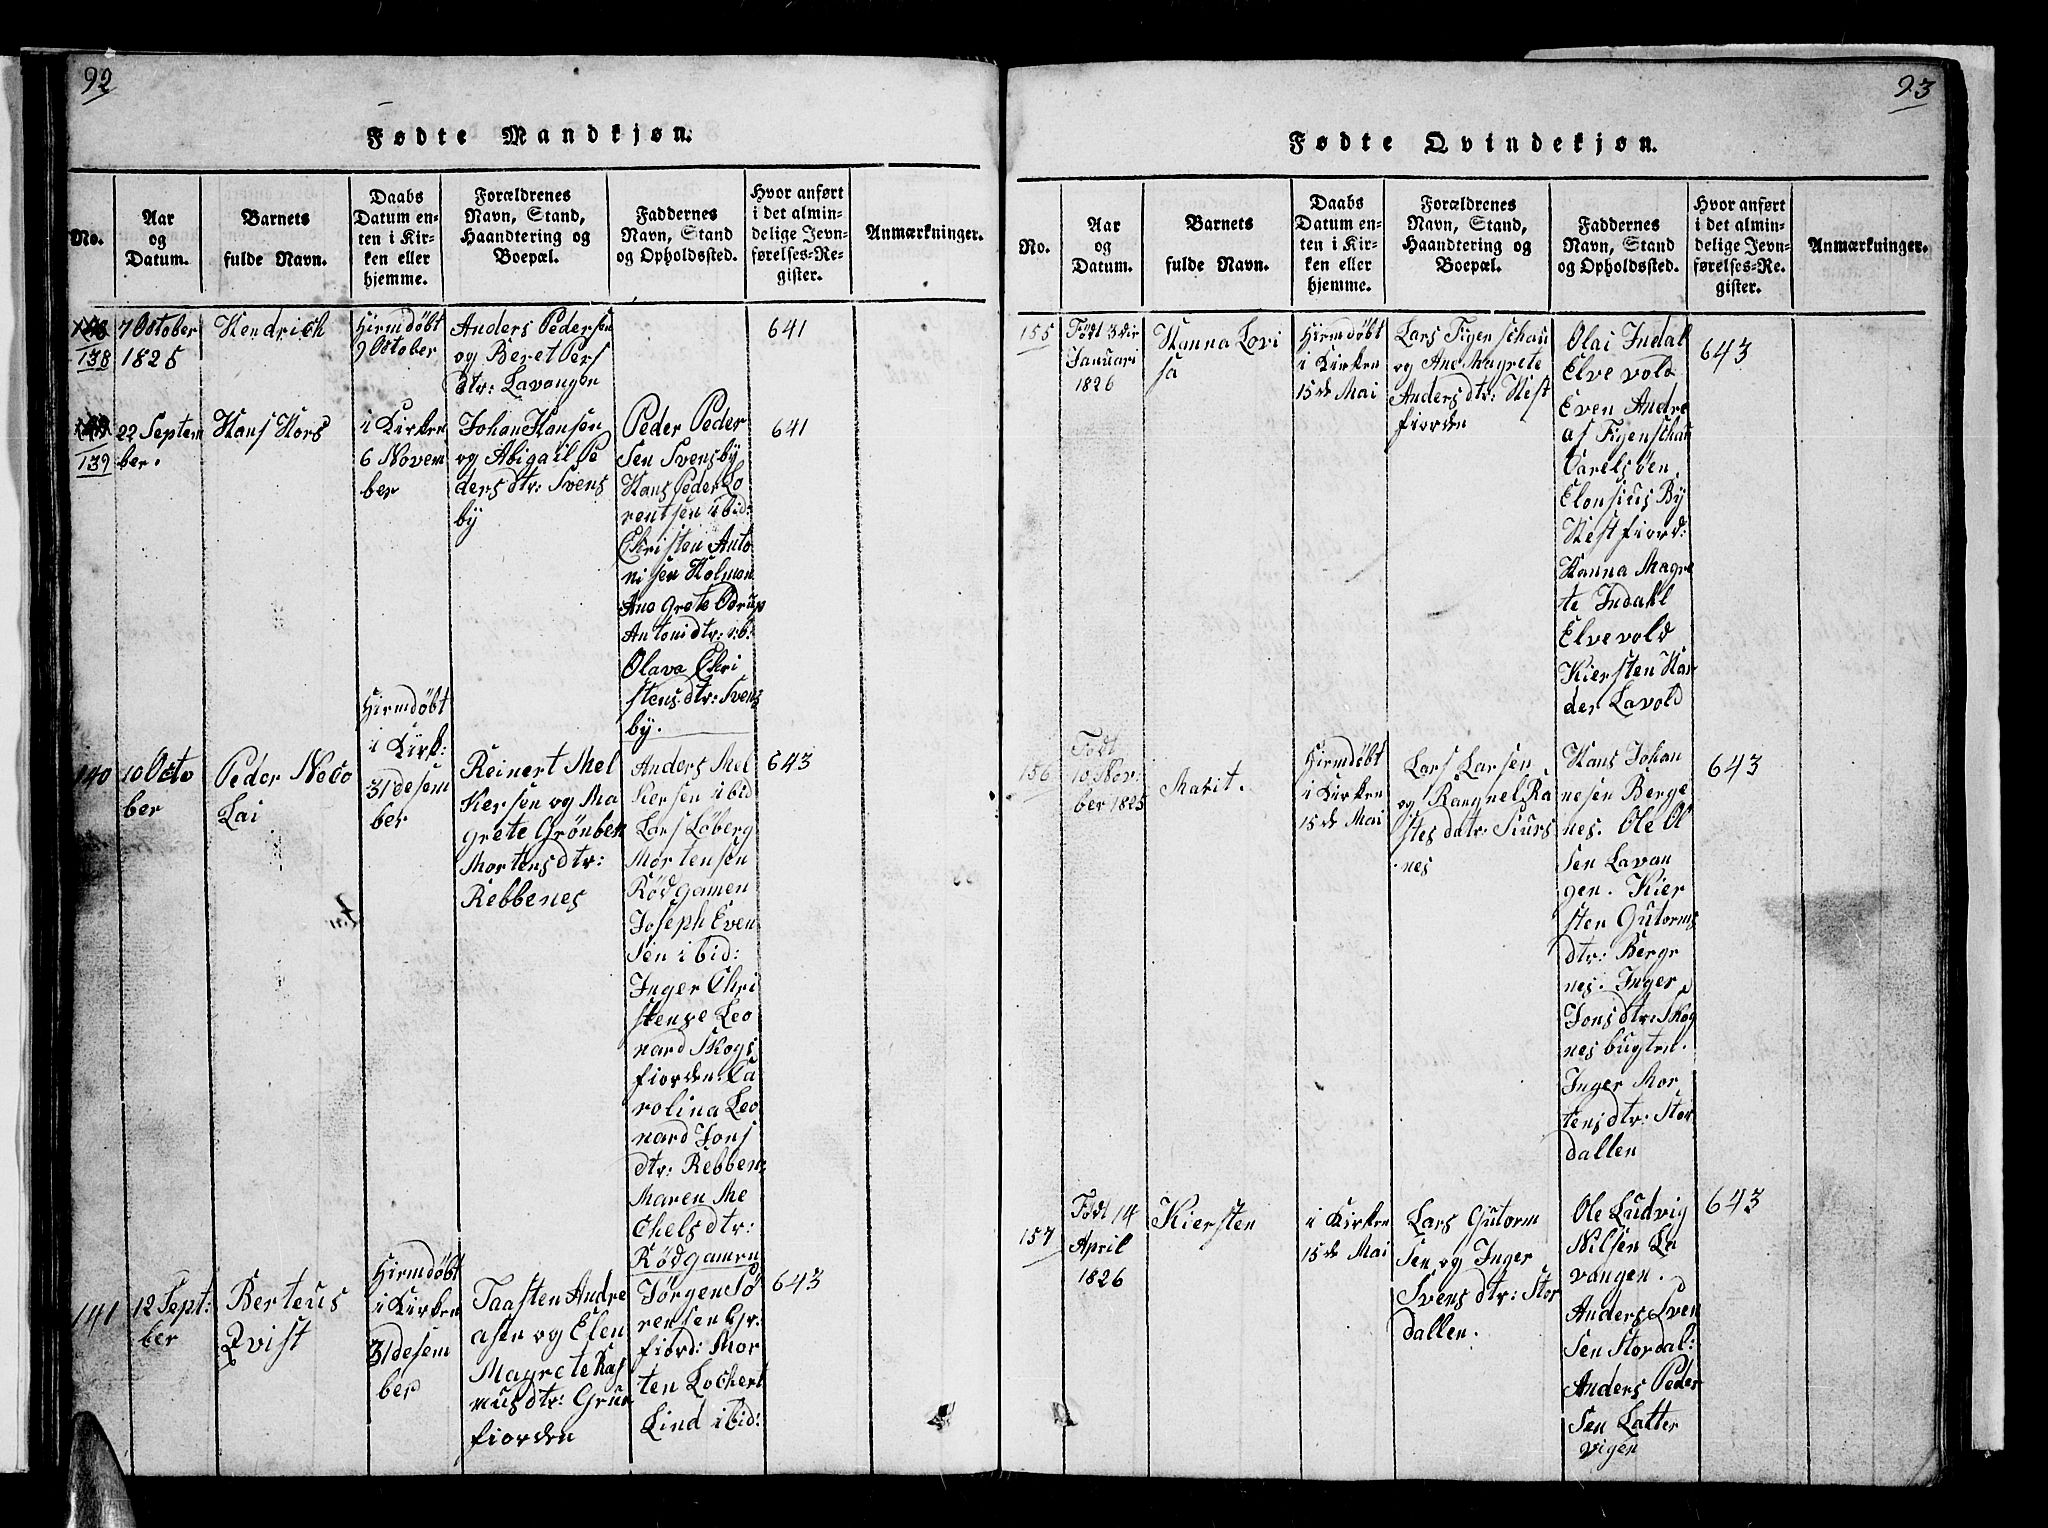 92
Fødte Mandkjøn.
No.
Aar
og
Datum.
Barnets
fulde Navn.
Daabs
Datum en-
ten i Kir-
ken eller
hjemme.
Forældrenes
Navn, Stand,
Haandtering og
Boepæl.
Faddernes
Navn, Stand
og Opholdssted.
Hvor anført
i det almin-
delige Jevn-
førelses-Re-
gister.
Anmærkninger.
138
7 October
1825
Hendrich
Hiemdøbt
9 October
Anders Pedersen
og Beret Pers
dtr: Lavangen
641
139
22 Septem
ber.
Hans Hors
i Kirken
6 Novem
ber
Johan Hansen
og Abigail Pe
dersdtr: Svens
by
Peder Peder
sen Svensby
Hans Peder Lo
rentsen ibid:
Christen Anto
nisen Holman
Ane Grete
Antonidtr: ib:
Olava Chri
stensdtr: Svens
by.
641
140
10 Octo
ber
Peder Nico
Lai
Hiemdøbt
i Kirk:
31 desem
ber
Reinert Mel
Kersen og Ma
grete Grönbek
Mortensdtr:
Rebbenes
Anders Mel
Kersen ibid
Lars Løberg
Mortensen
Rödgamen
Joseph Even
Sen ibid:
Inger Chri
stense Leo
nard Skogs
fiorden. Ca
rolina Leo
nard Jons
dtr: Rebben:
Maren Me
Chelsdtr:
Rödgamen
643
141
12 Sept:
ber
Berteus
Qvist
Hiemdøbt
i Kirken
31 desem
ber
Taasten Andre
asen og Elen
Magrete Ras
musdtr: Grun
fiorden
Jørgen Sø
rensen Gr:
fiord: Mor
ten Lochert
Lind ibid:
643
93
Fødte Qvindekjøn.
No.
Aar
og
Datum.
Barnets
fulde Navn.
Daabs
Datum en-
ten i Kir-
ken eller
hjemme.
Forældrenes
Navn, Stand,
Haandtering og
Boepæl.
Faddernes
Navn, Stand
og Opholdssted.
Hvor anført
i det almin-
delige Jevn-
førelses-Re-
gister.
Anmærkninger.
155
Födt 3die
Januari
1826
Hanna Lovi
sa
Hiemdøbt
i Kirken
15de Mai
Lars Figenschau
og Ane Magrete
Andersdtr: Vest
fiorden
Olai Indal
Elvevold
Even Andre
as Figenschau
Carelsöen
Elonsius By
Vestfiord:
Hanna Magre
te Indahl
Elvevold
Kiersten Har
der Lavold
643
156
Födt
10 Nov:
ber 1825
Marit.
Hiemdøbt
i Kirken
15de Mai
Lars Larsen
og Rangnel Ra
stesdatr: Siurs
nes
Hans Johan
nesen Berge
nes. Ole Ol
sen Lavan
gen. Kier
sten Gutorms
dtr: Berge
nes. Inger
Jonsdtr: Skog
nesbugten.
Inger Mor
tensdtr: Stor
dallen
643
157
Födt 14
April
1826
Kiersten
i Kirken
15de Mai
Lars Gutorm
Sen og Inger
Svensdtr: Stor
dallen.
Ole Ludvig
Nilsen La
vangen.
Anders Sven
Sen Stordal:
Anders Peder
Sen Latter
vigen
643